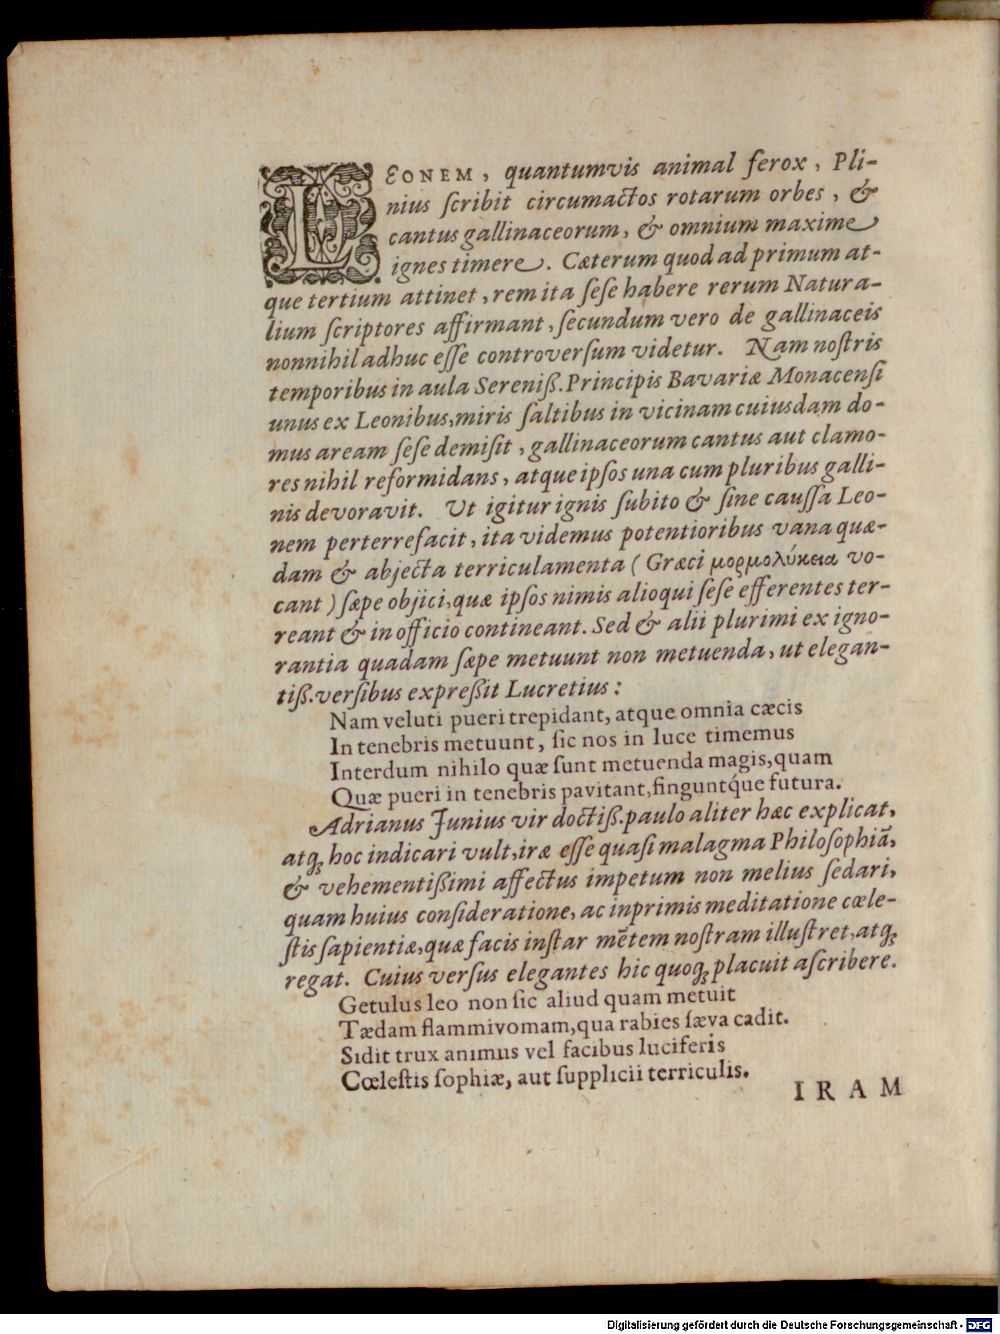 LEONEM, quantumvis animal ferox, Pli-
nius ſcribit circumactos rotarum orbes, &
cantus gallinaceorum, & omnium maxime
ignes timere. Cæterum quod ad primum at-
que tertium attinet, rem ita ſeſe habere rerum Natura-
lium ſcriptores affirmant, ſecundum vero de gallinaceis
nonnihil adhuc eſſe controverſum videtur. Nam noſtris
temporibus in aula Sereniß. Principis Bavariæ Monacenſi
unus ex Leonibus, miris ſaltibus in vicinam cuiusdam do-
mus aream ſeſe demiſit, gallinaceorum cantus aut clamo-
res nihil reformidans, atque ipſos una cum pluribus galli-
nis devoravit. Ut igitur ignis ſubito & ſine cauſſa Leo-
nem perterrefacit, ita videmus potentioribus vana quæ-
dam & abjecta terriculamenta (Græci μορμολύκεια vo-
cant) ſæpe objici, quæ ipſos nimis alioqui ſeſe efferentes ter-
reant & in officio contineant. Sed & alii plurimi ex igno-
rantia quadam ſæpe metuunt non metuenda, ut elegan-
tiß. verſibus expreßit Lucretius:
Nam veluti pueri trepidant, atque omnia cæcis
In tenebris metuunt, ſic nos in luce timemus
Interdum nihilo quæ ſunt metuenda magis, quam
Quæ pueri in tenebris pavitant, finguntq́ue futura.
Adrianus Junius vir doctiß. paulo aliter hæc explicat,
atq; hoc indicari vult, iræ eſſe quaſi malagma Philoſophiā,
& vehementißimi affectus impetum non melius ſedari,
quam huius conſideratione, ac inprimis meditatione cœle-
ſtis ſapientiæ, quæ facis inſtar mētem noſtram illuſtret, atq;
regat. Cuius verſus elegantes hic quoq; placuit aſcribere.
Getulus leo non ſic aliud quam metuit
Tædam flammivomam, qua rabies ſæva cadit.
Sidit trux animus vel facibus luciferis
Cœleſtis ſophiæ, aut ſupplicii terriculis.
IRAM
Digitalisierung gefördert durch die Deutsche Forschungsgemeinschaft - DFG